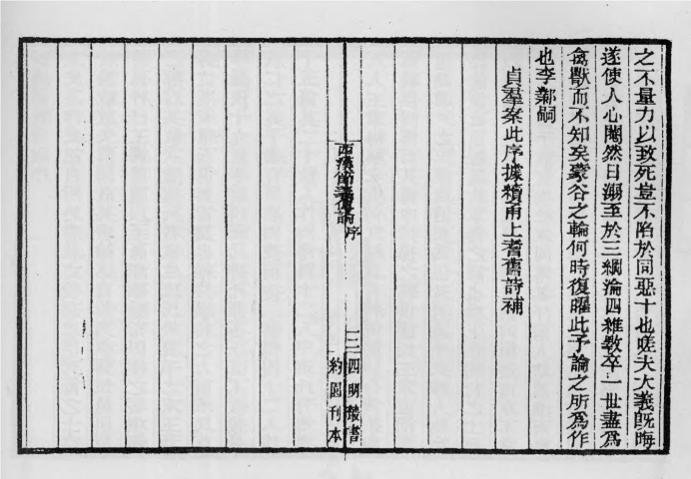 之不量力以致死豈不陷於同惡十也嗟夫大義既晦
遂使人心闇然日溺至於三綱淪四維斁卒一世盡爲
禽獸而不知矣蒙谷之輪何時復曜此予論之所爲作
也李鄴嗣
貞羣案此序據續甬上耆舊詩補
西漢節義傳論序
三
四明叢書
約園刊本